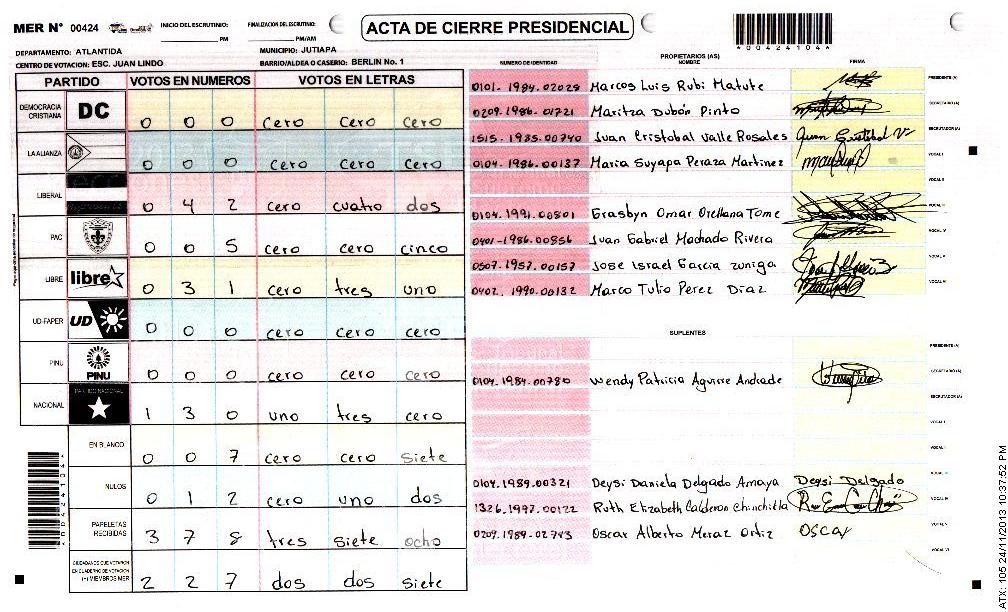 MER Nº 00424
INICIO DEL ESCRUTINIO:
PM
FINALIZACION DEL ESCRUTINIO:
PM/AM
ACTA DE CIERRE PRESIDENCIAL
*00424104*
DEPARTAMENTO: ATLANTIDA
MUNICIPIO: JUTIAPA
CENTRO DE VOTACION: ESC. JUAN LINDO
BARRIO/ALDEA O CASERIO: BERLIN No. 1
PARTIDO VOTOS EN NUMEROS VOTOS EN LETRAS
DEMOCRACIA CRISTIANA DC 0 0 0 cero cero cero
LA ALIANZA 0 0 0 cero cero cero
LIBERAL 0 4 2 cero cuatro dos
PAC 0 0 5 cero cero cinco
LIBRE libre 0 3 1 cero tres uno
UD-FAPER UD 0 0 0 cero cero cero
PINU PINU 0 0 0 cero cero cero
NACIONAL 1 3 0 uno tres cero
EN BLANCO 0 0 7 cero cero siete
NULOS 0 1 2 cero uno dos
PAPELETAS RECIBIDAS 3 7 8 tres siete ocho
CIUDADANOS QUE VOTARON EN CUADERNO DE VOTACION (+) MIEMBROS MER 2 2 7 dos dos siete
PROPIETARIOS (AS)
NUMERO DE IDENTIDAD NOMBRE FIRMA
0101-1984-02028 Marcos Luis Rubi Matute PRESIDENTE (A)
0209-1986-01721 Maritza Dubón Pinto SECRETARIO (A)
1515-1985-00740 Juan Cristobal Valle Rosales ESCRUTADOR (A)
0104-1986-00137 Maria Suyapa Peraza Martinez VOCAL I
VOCAL II
0104-1991-00801 Erasbyn Omar Orellana Tome VOCAL III
0401-1986-00856 Juan Gabriel Machado Rivera VOCAL IV
0507-1957-00157 Jose Israel Garcia zuniga VOCAL V
0402-1990-00132 Marco Tulio Perez Diaz VOCAL VI
SUPLENTES
PRESIDENTE (A)
0104-1984-00780 Wendy Patricia Aguirre Andrade SECRETARIO (A)
ESCRUTADOR (A)
VOCAL I
0104-1989-00321 Deysi Daniela Delgado Amaya Deysi Delgado
1326-1997-00122 Ruth Elizabeth Calderon Chinchilla
0209-1989-02743 Oscar Alberto Meraz Ortiz OSCAR VOCAL V
VOCAL VI
ATX: 105 24/11/2013 10:37:52 PM